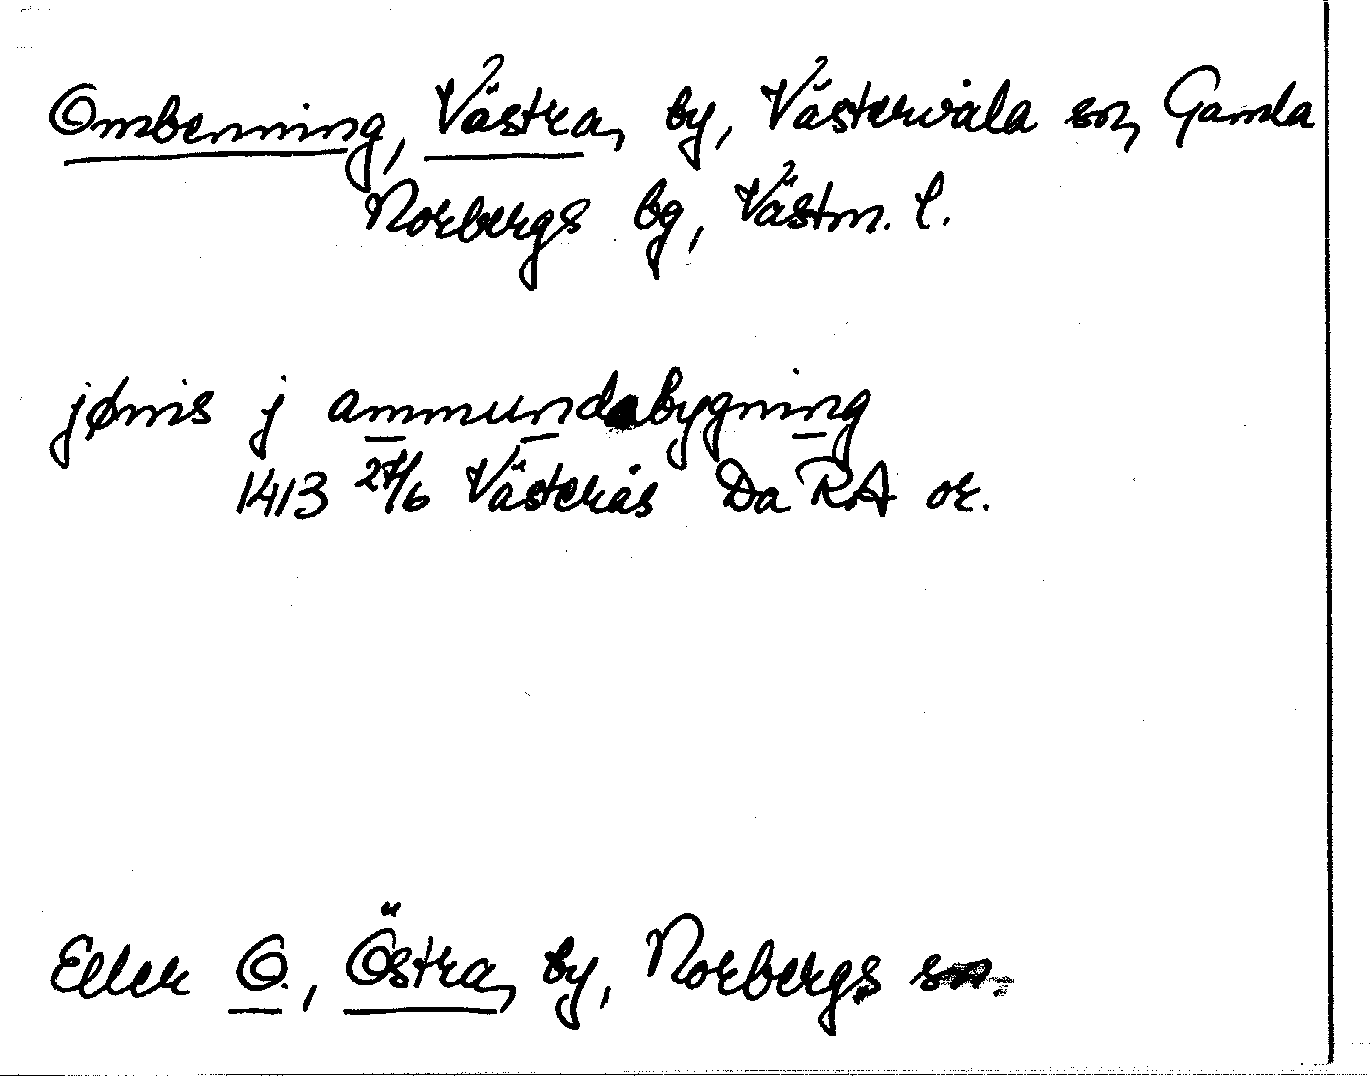 Ombenning, Västra, by, Västervåla sn, Gamla
Norbergs bg, Västm. l.
jønis j ammundabygning
1413 27/6 Västerås Da RA or.
Eller O., Östra, by, Norbergs sn.